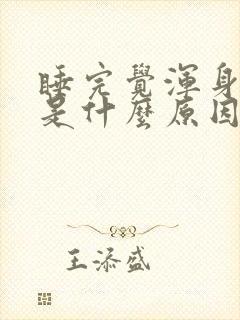 睡完覺渾身
是什麼原因
王添盛